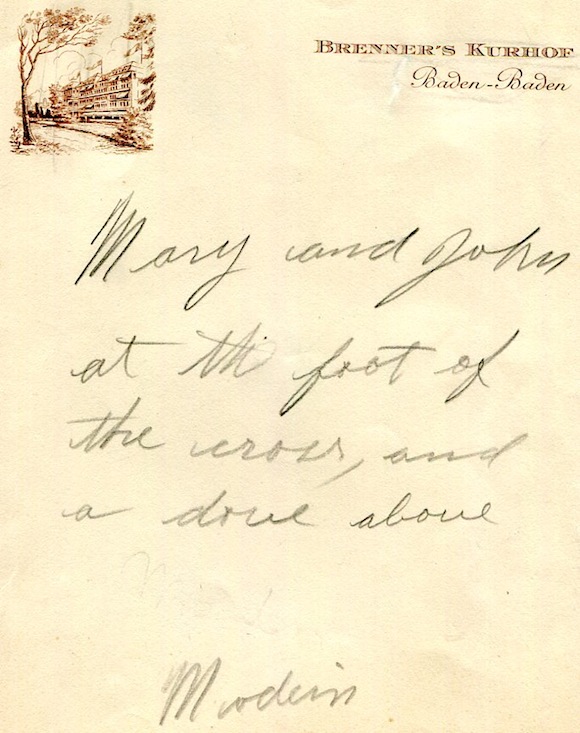 BRENNER'S KURHOF
Baden-Baden
Mary and John
at th foot of
the cross, and
a dove above
Modern